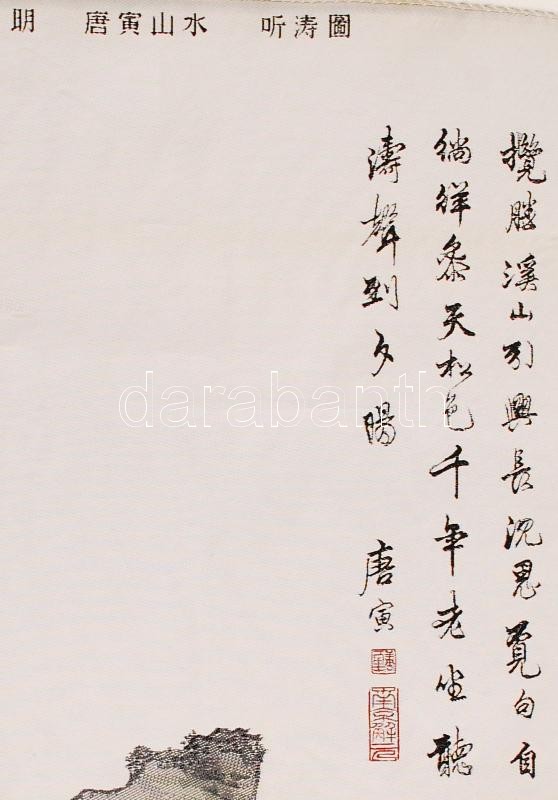 明 唐寅山水 听涛圖
攬勝溪山引興長沉思覓句自
徜徉參天松色千年老坐聽
濤聲到夕陽
唐寅
南京解元
darabanth